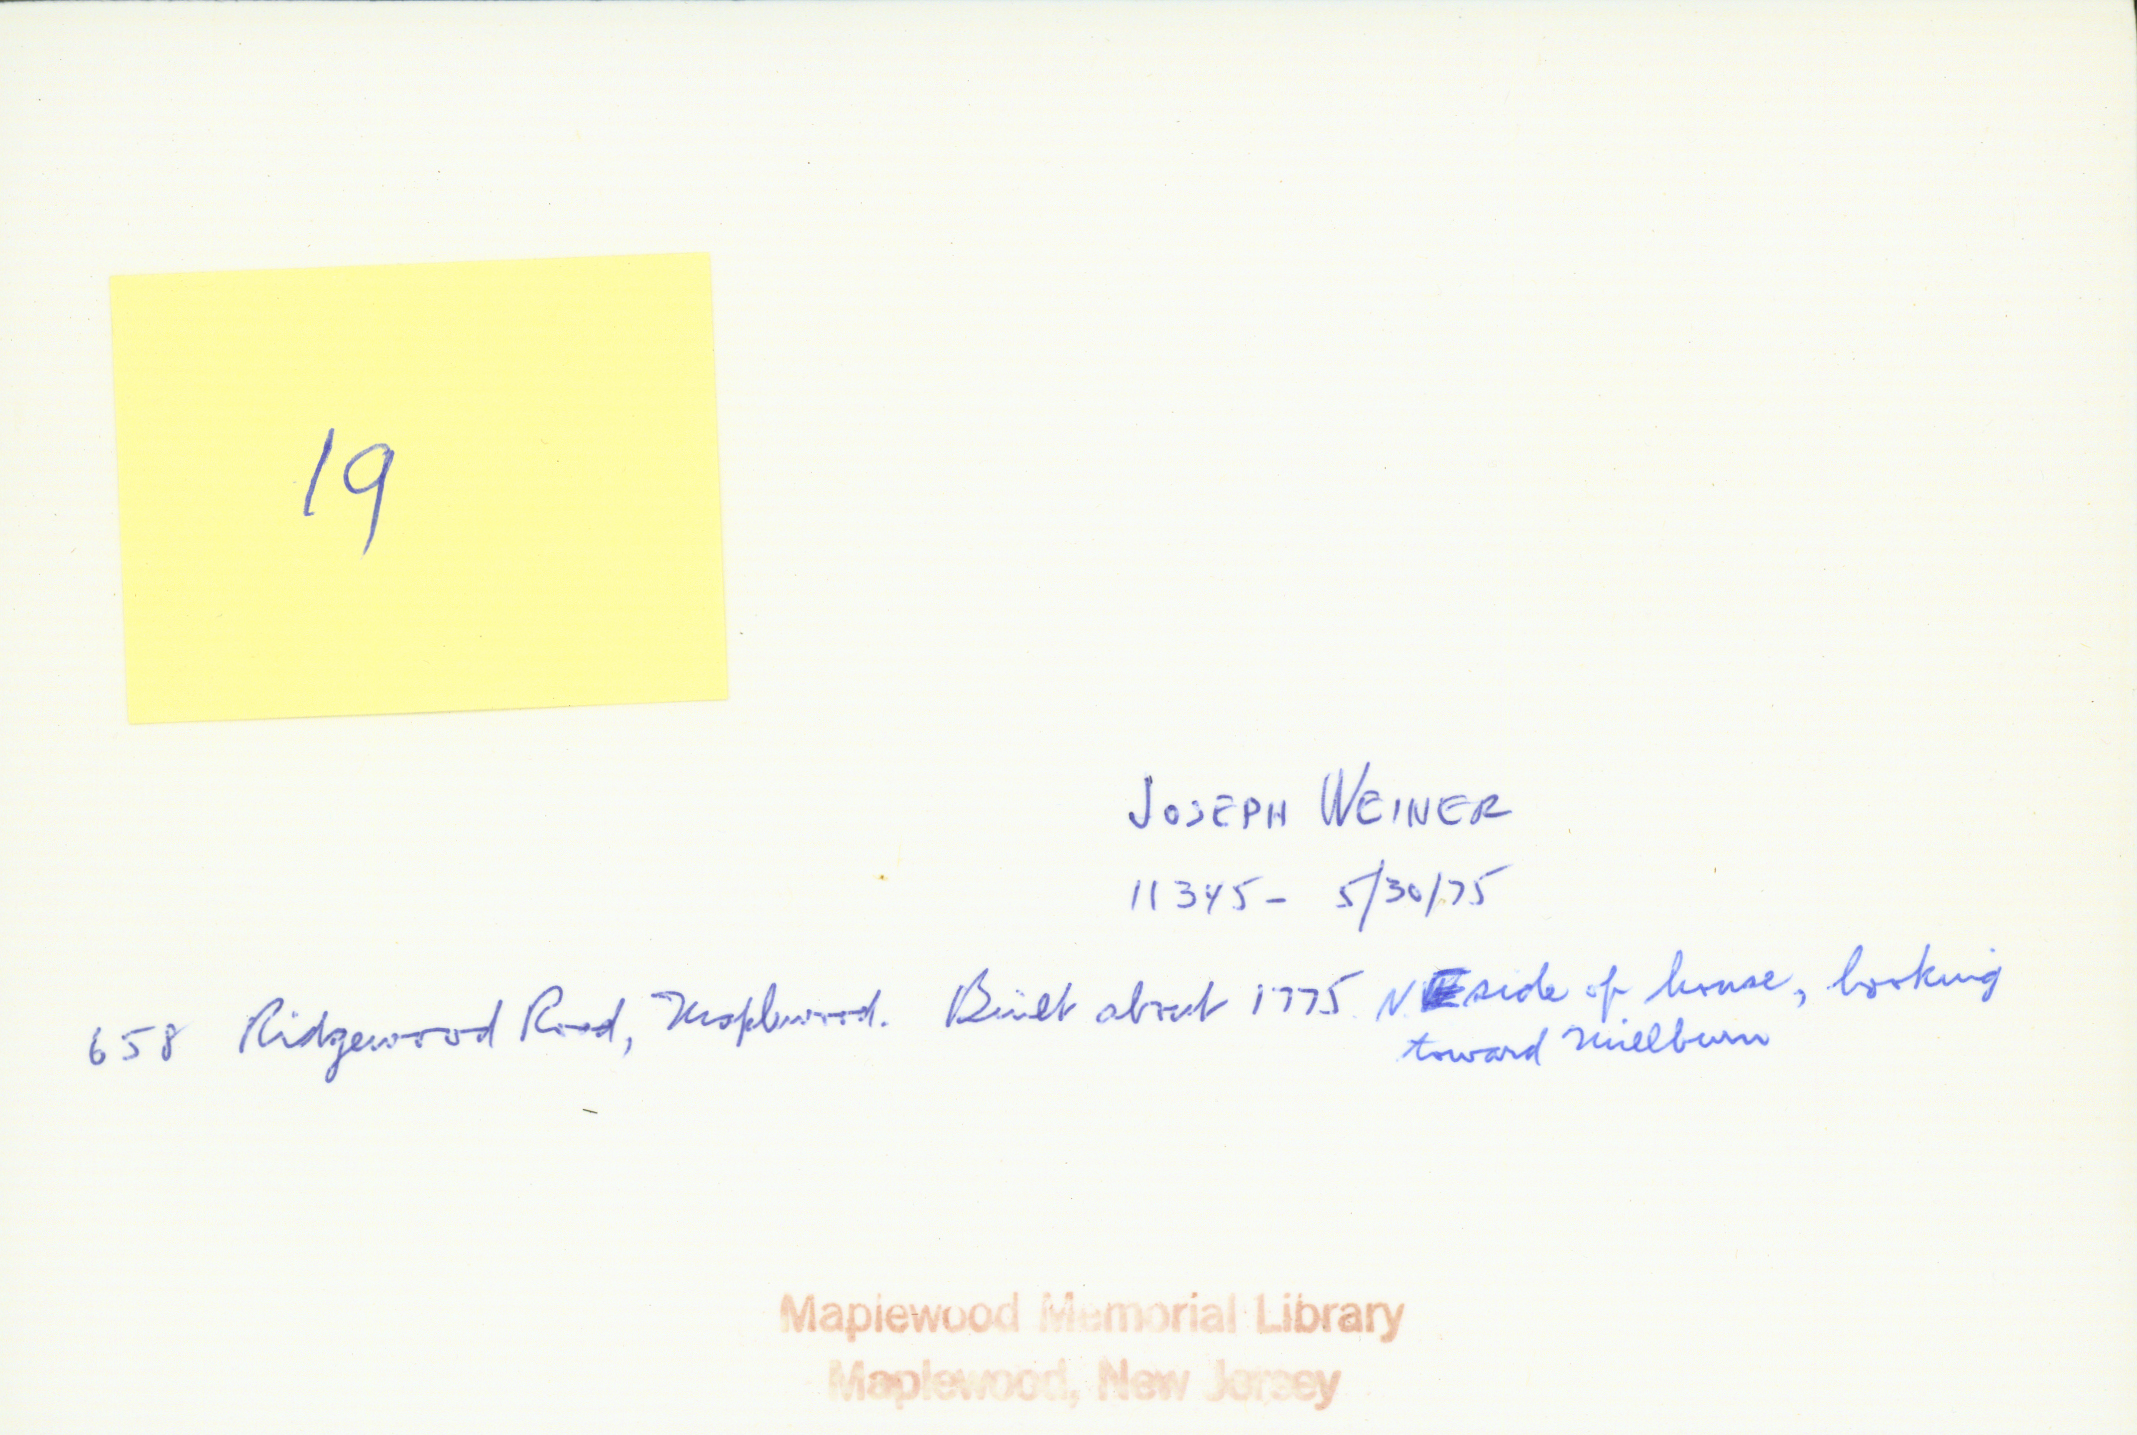 19
JOSEPH WEINER
11345- 5/30/75
658 Ridgewood Road, Maplewood. Built about 1775. NE side of house, looking
toward Millburn
Maplewood Memorial Library
Maplewood, New Jersey